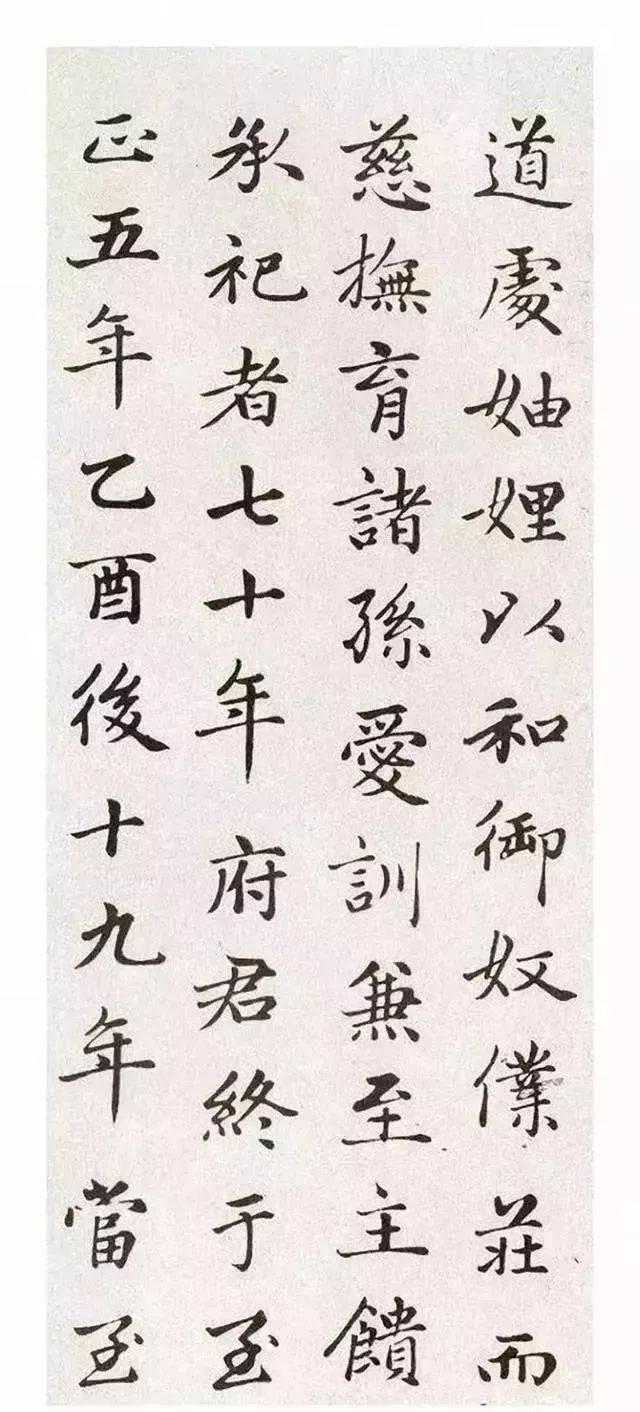 道處妯娌以和御奴僕莊而
慈撫育諸孫愛訓兼至主饋
承祀者七十年府君終于至
正五年乙酉後十九年當至